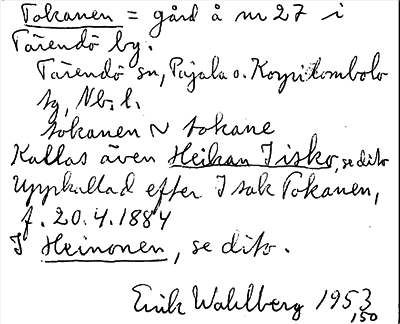 Tokanen = gård å nr 27 i
Tärendö by.
Tärendö sn, Pajala o. Korpilombolo
tg, Nb. l.
tokanen ~ tokane
Kallas även Heikan Iisko, se dito
Uppkallad efter Isak Tokanen,
f. 20.4.1884
I Heinonen, se dito.
Erik Wahlberg 1953
,50